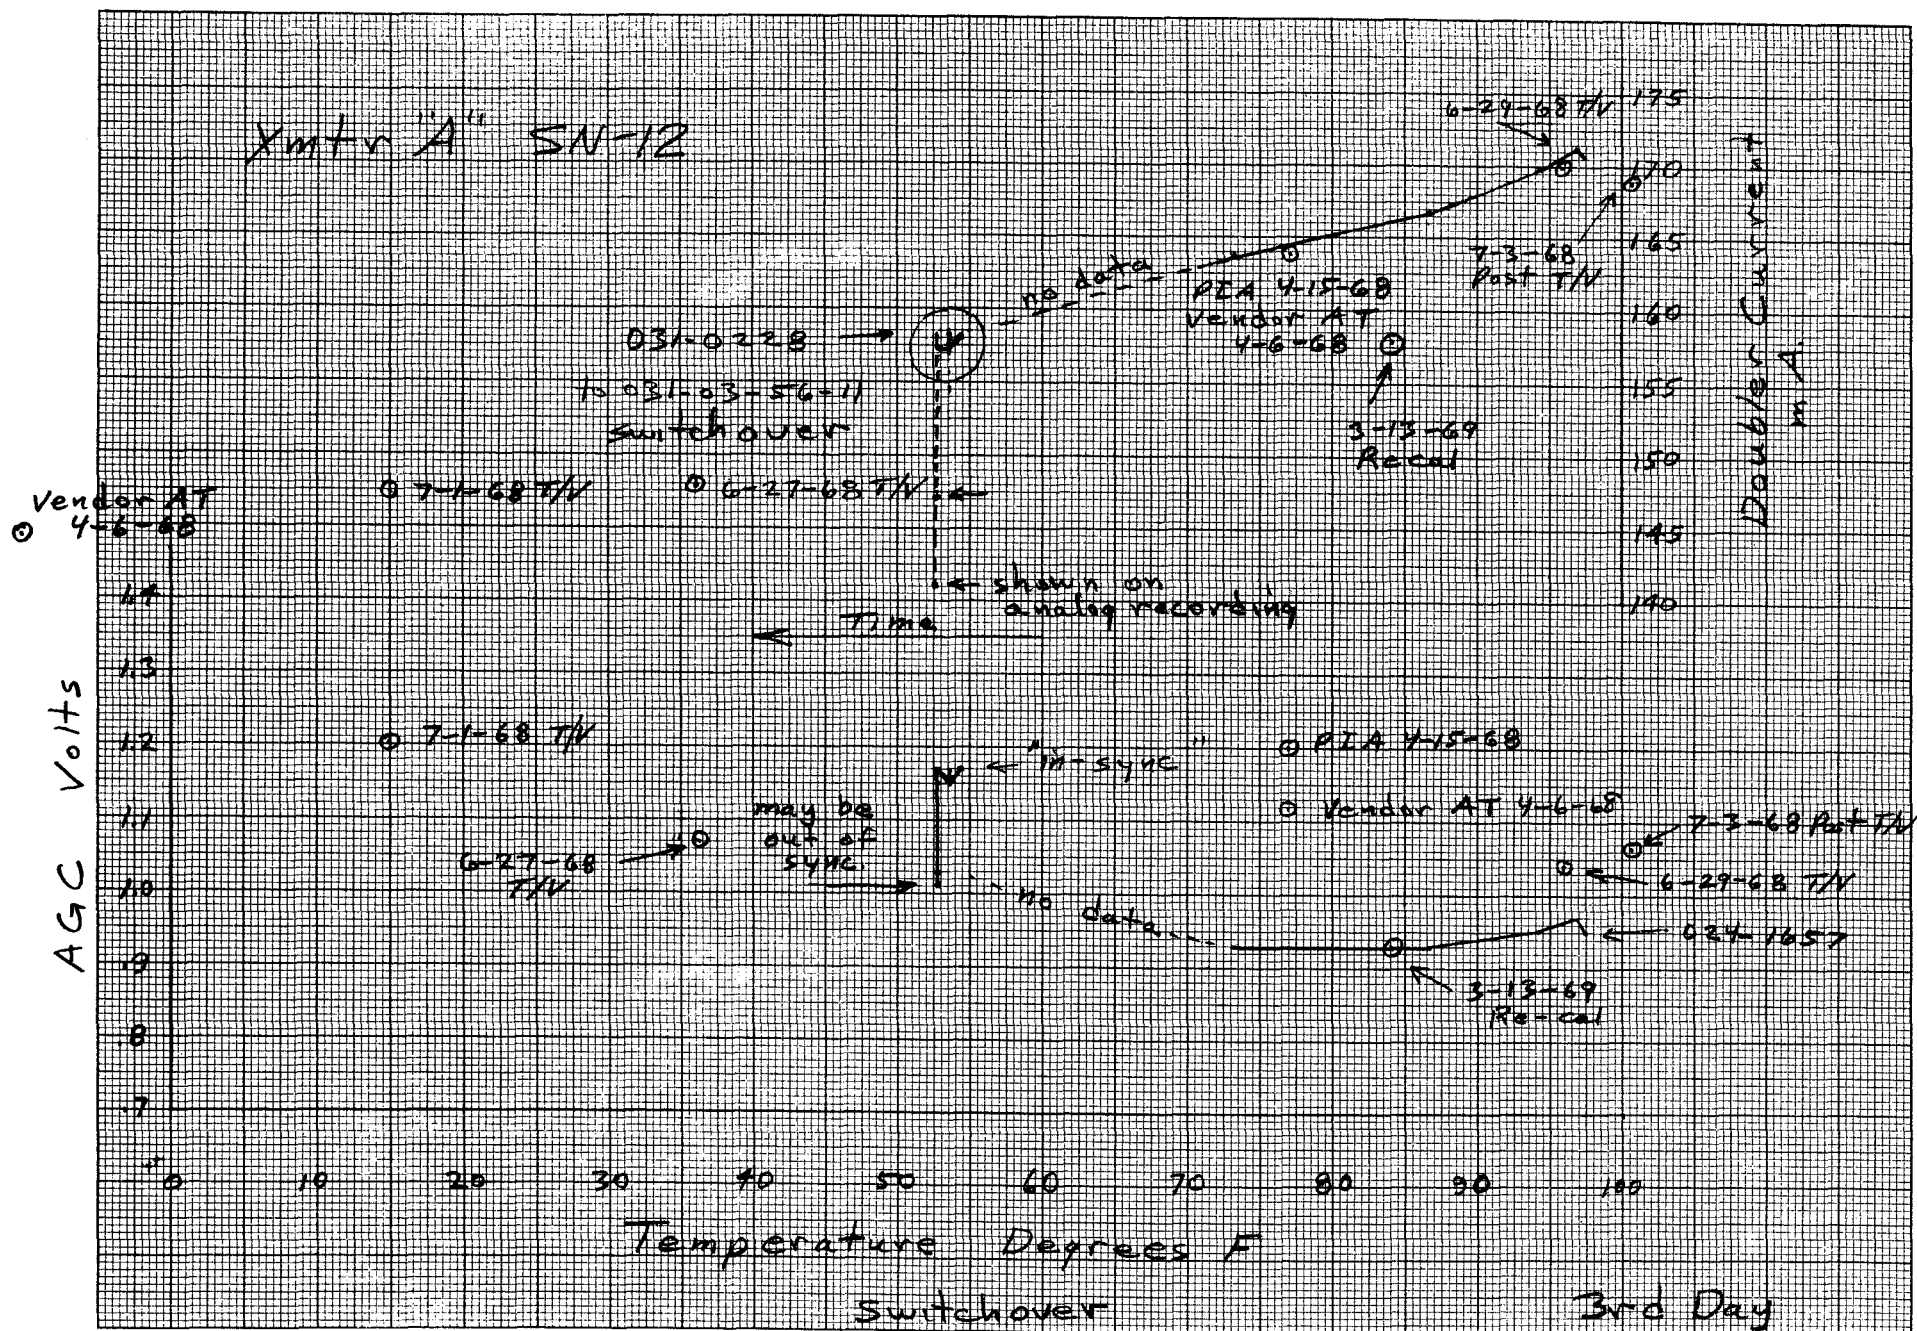 Xmtr "A" SN-12
6-29-68 T/V
175
170
165
160
155
150
145
140
Doubler Current
m A.
7-3-68
Post T/V
no data
PIA 4-15-68
Vendor AT
4-6-68
3-13-69
Recal
031-0228
to 031-03-56-11
switchover
Vendor AT
4-6-68
7-1-68 T/V
6-27-68 T/V
shown on
analog recording
Time
AGC Volts
1.4
1.3
1.2
1.1
1.0
.9
.8
.7
7-1-68 T/V
"in-sync"
PIA 4-15-68
may be
out of
sync.
Vendor AT 4-6-68
7-3-68 Post T/V
6-27-68
T/V
6-29-68 T/V
no data
024-1657
3-13-69
Re-cal
0 10 20 30 40 50 60 70 80 90 100
Temperature Degrees F
Switchover
3rd Day